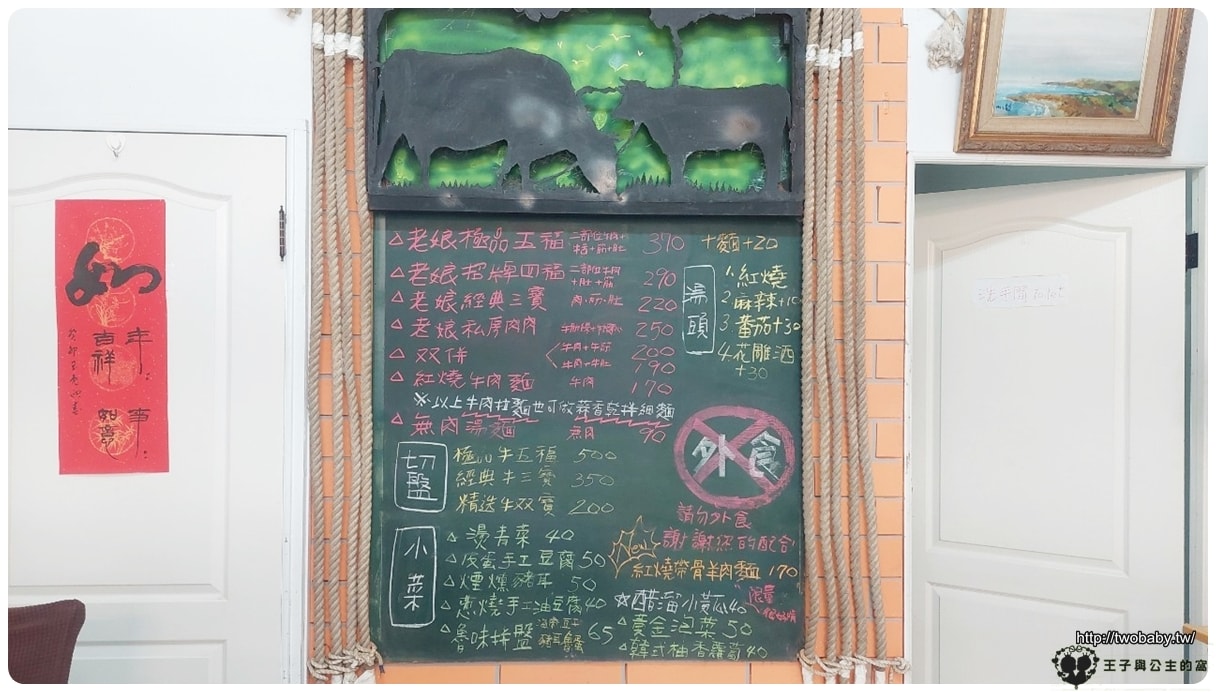 年年吉祥
事事如意
△老娘極品五福 二部位牛肉+ 370 +麵+20
△老娘招牌四福 二部位牛肉+肚+筋 290
△老娘經典三寶 肉+筋+肚 220
△老娘私房肉肉 250
△双併 牛肉+牛筋 200
牛肉+牛肚 190
△紅燒牛肉麵 牛肉 170
※以上牛肉拉麵也可做蒜香乾拌細麵
△無肉湯麵 無肉 90
湯頭
1.紅燒
2.麻辣+10
3.番茄+30
4.花雕酒+30
外食
請勿外食
謝謝您的配合
切盤
極品牛五福 500
經典牛三寶 350
精选牛双寶 200
小菜
△燙青菜 40
△皮蛋手工豆腐 50
△煙燻豬耳 50
△蔥燒手工油豆腐 40
△魯味拼盤 65
New!
紅燒帶骨羊肉麵 170
限量
☆醋溜小黃瓜 40
△黃金泡菜 50
△韓式柚香蘿蔔 40
洗手間 Toilet
http://twobaby.tw/
王子與公主的窩